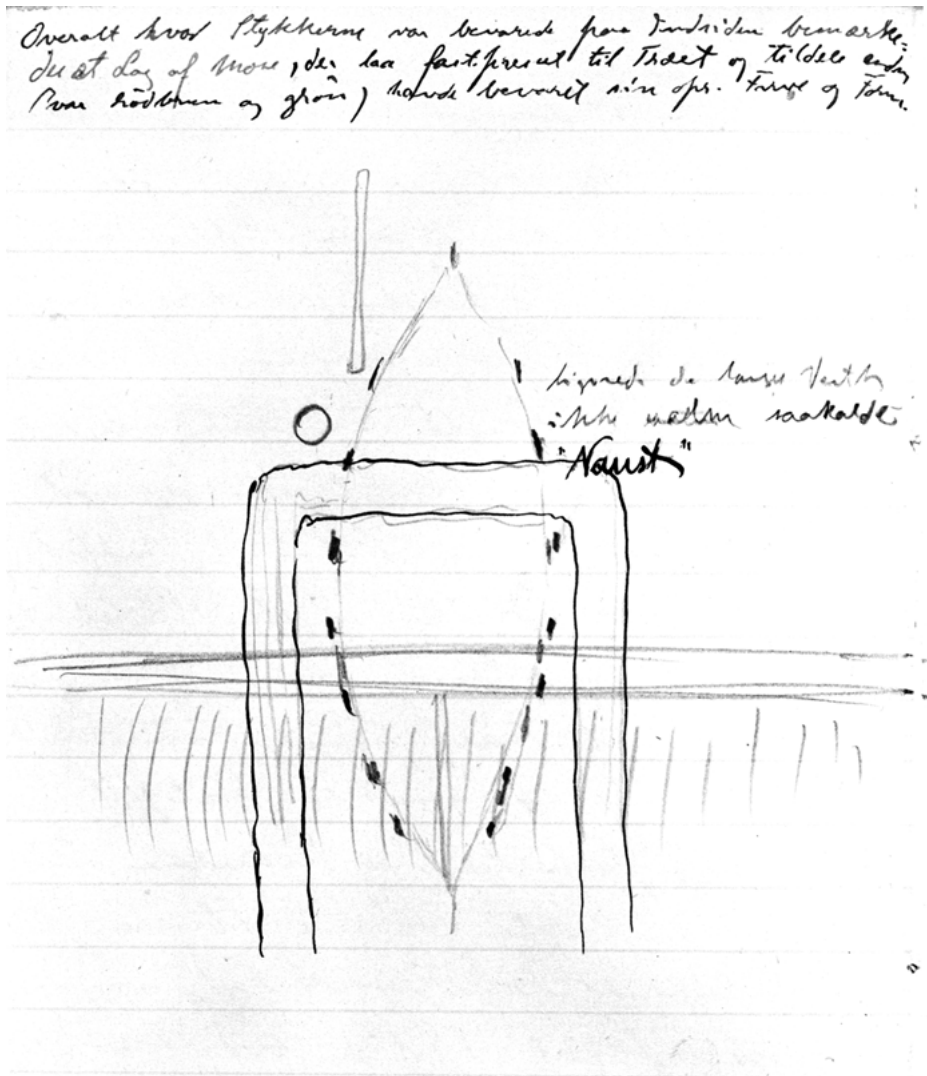 Overalt hvor Stykkerne var bevarede paa Indsiden bemærke-
des et Lag af Mose, der laa fastpresset til Træet og tildels endnu
(var rödbrun og grön) havde bevaret sin opr. Farve og Form.
lignede de lange Vest
ikke saakaldte
"Naust"